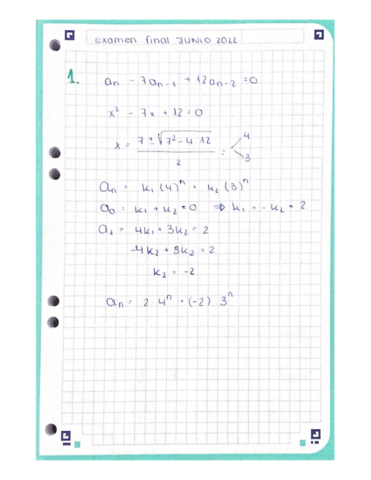 Examen final JUNIO 2022
1. an - 7an-1 + 12an-2 = 0
x² - 7x + 12 = 0
x = 7 ± √7² - 4·12 / 2 = 4 3
an = k1 (4)^n + k2 (3)^n
a0 = k1 + k2 = 0 ⇒ k1 = -k2 = 2
a1 = 4k1 + 3k2 = 2
-4k2 + 3k2 = 2
k2 = -2
an = 2·4^n + (-2)·3^n